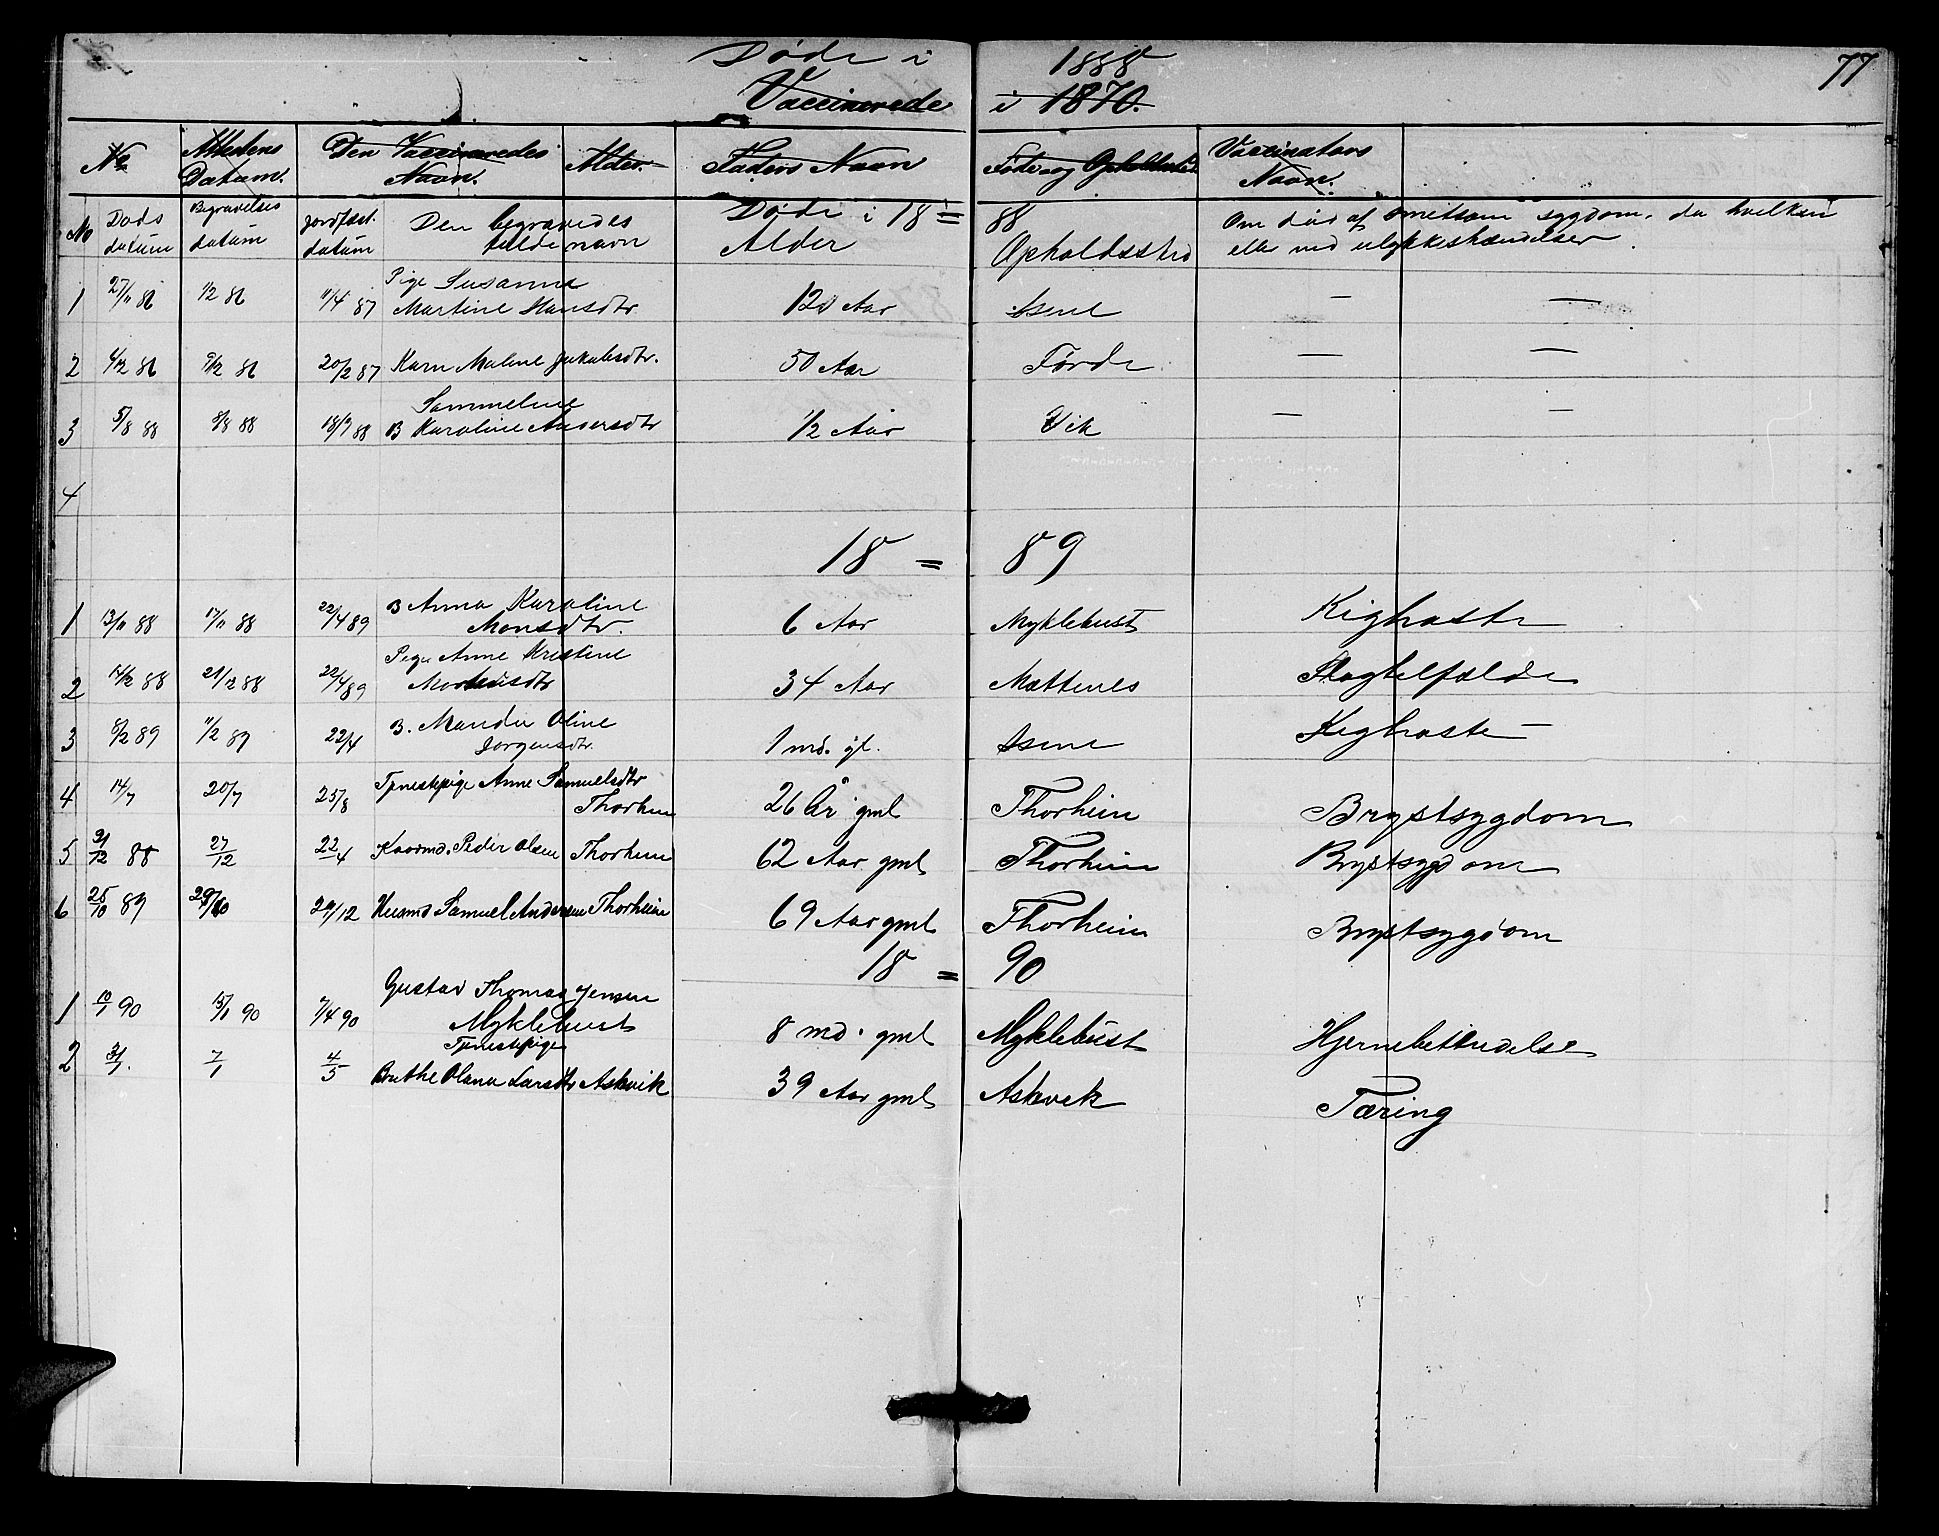 Døde i 1888 77
Vaccinerede i 1870.
No Attestens Datum. Den Vaccineredes Navn. Alder. Faders Navn Føde og Opholdssted Vaccinators Navn.
No Døds datum Begravelses datum Jordfæst. datum Den begravedes fulde navn Døde i 18 = 88 Alder Opholdssted Om død af smitsom sygdom, da hvilken
eller ved ulykkeshændelser.
1 27/11 86 1/2 86 11/4 87 Pige Susanne
Martine Hansdtr 12 Aar Isene — —
2 4/12 86 9/12 86 20/2 87 Karn Maline Jakobsdtr. 50 Aar Førde — —
3 5/8 88 8/8 88 18/9 88 B Sammeline
Karoline Andersdtr 1/2 Aar Vik — —
4
18 = 89
1 13/11 88 17/11 88 22/4 89 B Anna Karoline
Monsdtr. 6 Aar Myklebust Kighoste
2 14/12 88 21/12 88 22/4 89 Pige Anne Kristine
34 Aar Mattenes
3 8/2 89 11/2 89 22/4 B. Oline
Jorgensdtr. 1 md. gl. Isene Kighoste
4 14/7 20/7 25/8 Tjenestepige Anne Samuelsdtr
Thorheim 26 År gml Thorheim Brystsygdom
5 21/12 88 27/12 22/4 Kaarmd. Peder Olsen Thorheim 62 Aar gml Thorheim Brystsygdom
6 25/10 89 29/10 29/12 Husmd Samuel Andersen Thorheim 69 Aar gml Thorheim Brystsygdom
18 = 90
1 10/1 90 15/1 90 7/4 90 Gustav Thomas Jensen
Myklebust 8 md. gml Myklebust Hjernebetændelse
2 31/1. 7/1 4/5 Tjenestepige
Brethe Olana Larsdtr Askvik 39 Aar gml Askvik Tæring